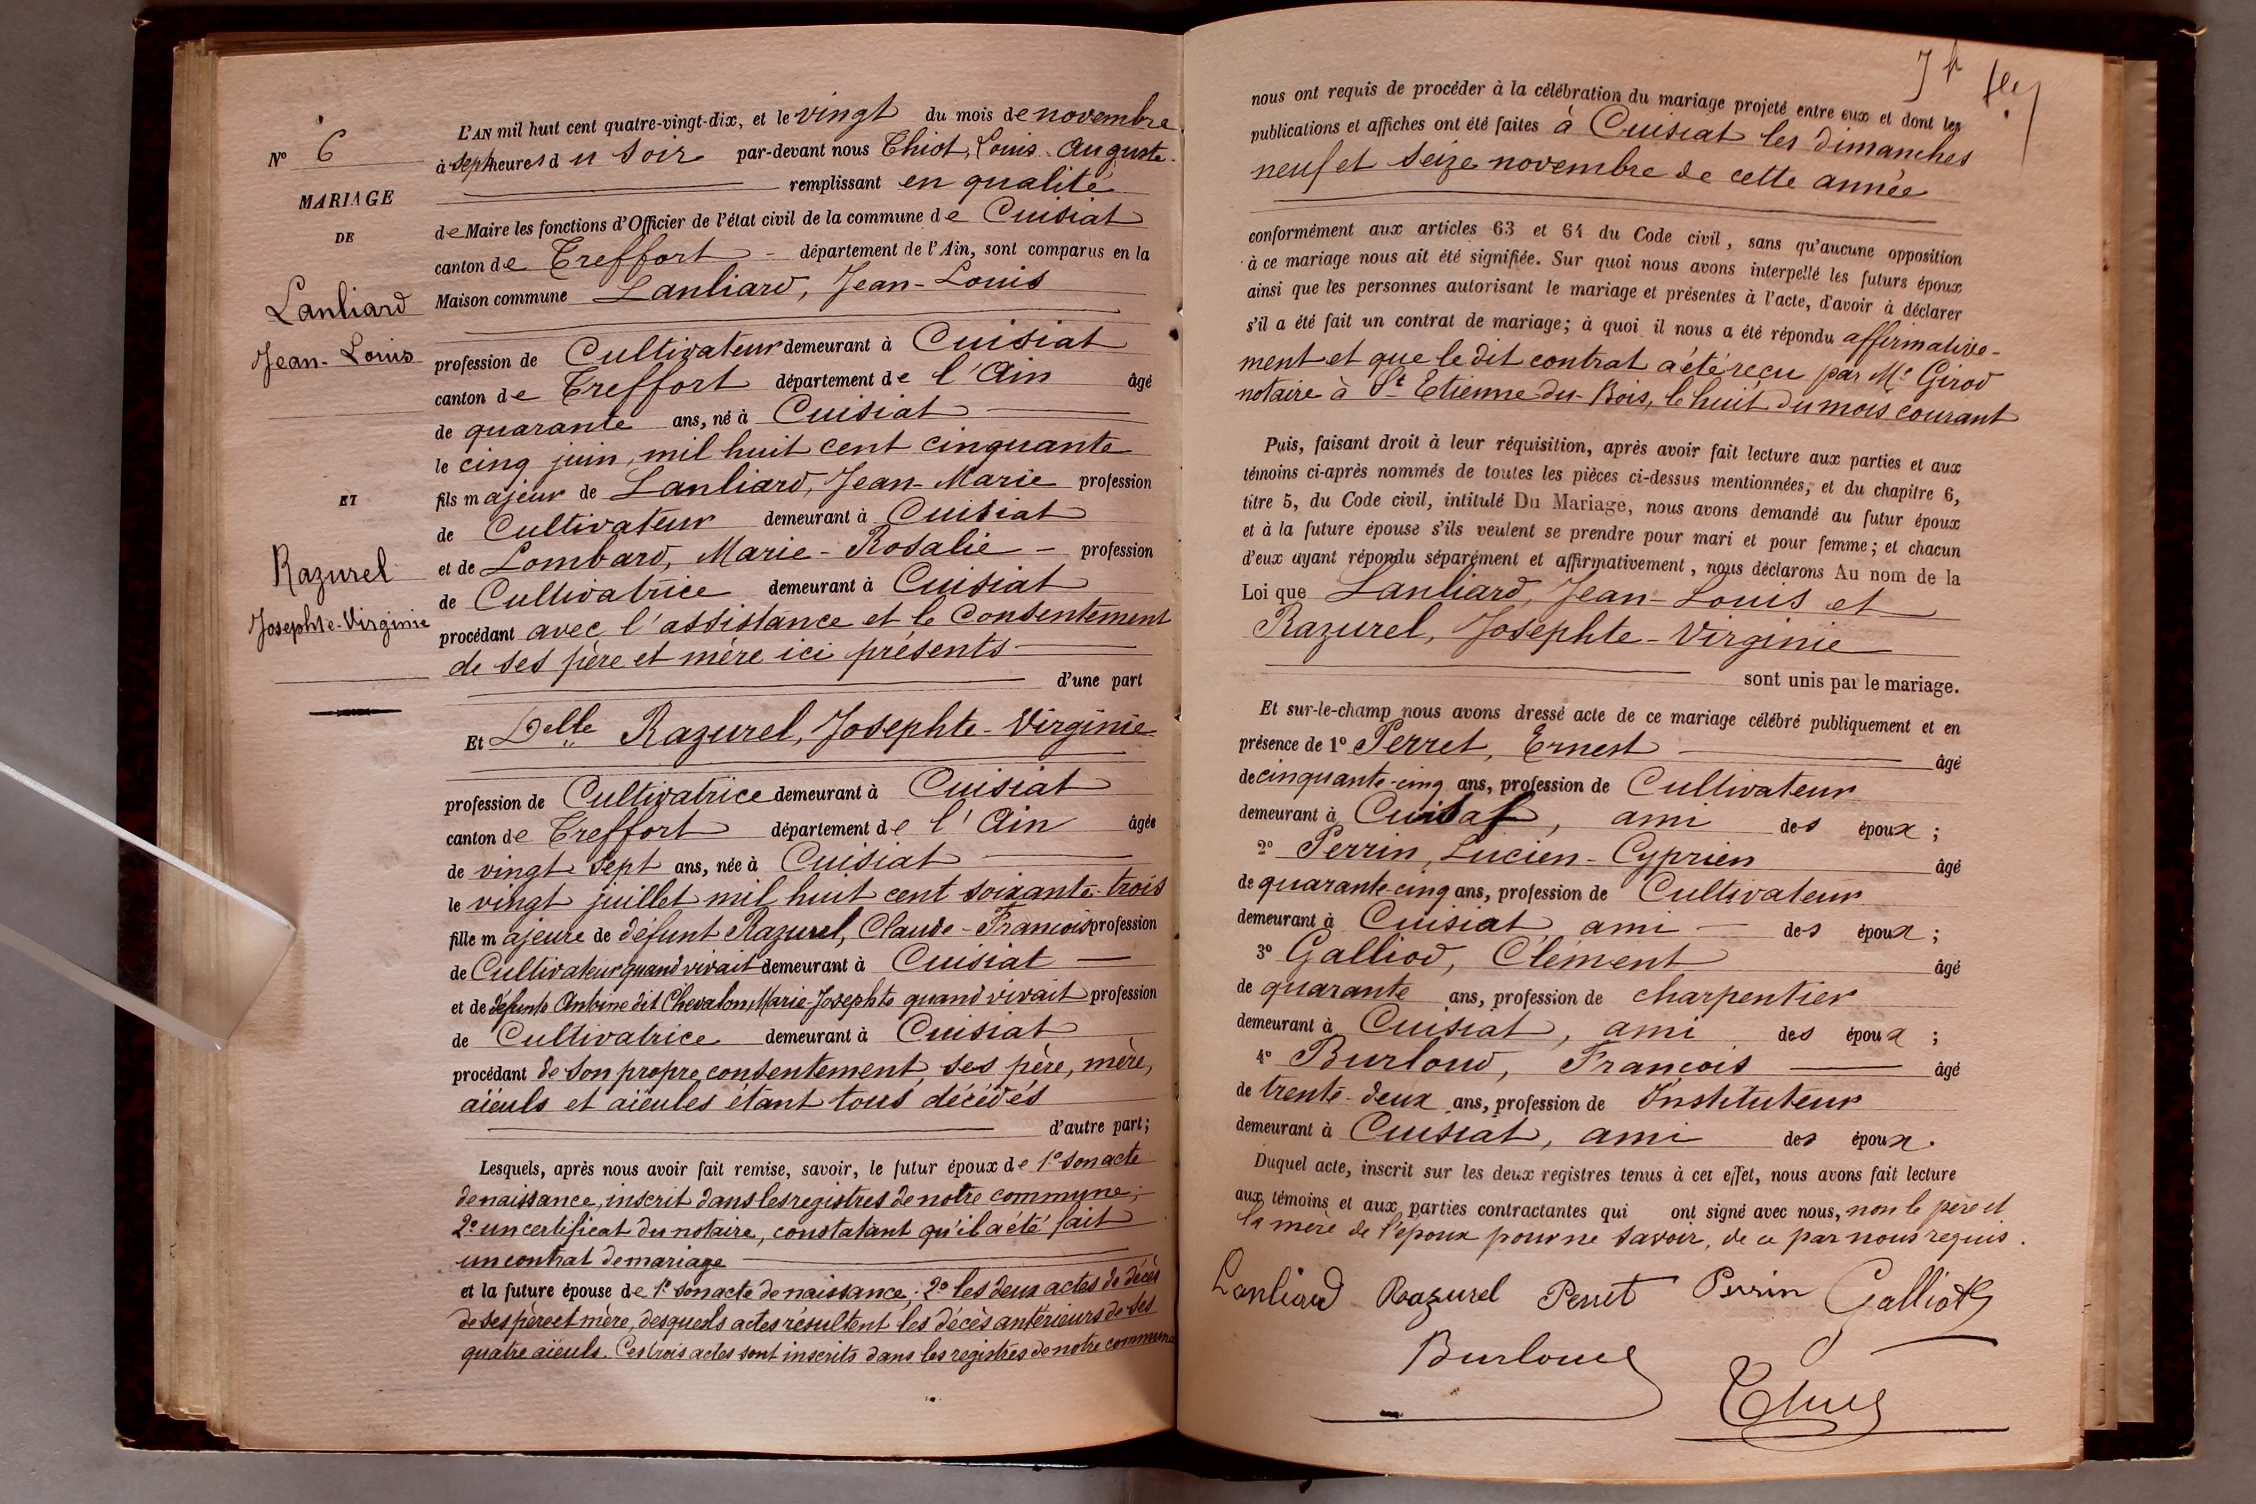 N° 6
MARIAGE
DE
Lanliard
Jean-Louis
ET
Razurel
Josephte-Virginie
L'AN mil huit cent quatre-vingt-dix, et le vingt du mois de novembre
à sept heures du soir par-devant nous Thiot, Louis-Auguste
remplissant en qualité
de Maire les fonctions d'Officier de l'état civil de la commune de Cuisiat
canton de Treffort département de l'Ain, sont comparus en la
Maison commune Lanliard, Jean-Louis
profession de Cultivateur demeurant à Cuisiat
canton de Treffort département de l'Ain âgé
de quarante ans, né à Cuisiat
le cinq juin, mil huit cent cinquante
fils majeur de Lanliard, Jean-Marie profession
de Cultivateur demeurant à Cuisiat
et de Lombard, Marie-Rosalie - profession
de Cultivatrice demeurant à Cuisiat
procédant avec l'assistance et le consentement
de ses père et mère ici présents
d'une part
Et Delle Razurel, Josephte-Virginie
profession de Cultivatrice demeurant à Cuisiat
canton de Treffort département de l'Ain âgée
de vingt sept ans, née à Cuisiat
le vingt juillet mil huit cent soixante-trois
fille majeure de défunt Razurel, Claude-François profession
de Cultivateur quand vivait demeurant à Cuisiat
et de défunte Antoine dit Chevalon, Marie-Josephte quand vivait profession
de Cultivatrice demeurant à Cuisiat
procédant de son propre consentement ses père, mère,
aïeuls et aïeules étant tous décédés
d'autre part;
Lesquels, après nous avoir fait remise, savoir, le futur époux de 1° son acte
de naissance, inscrit dans les registres de notre commune;
2° un certificat du notaire, constatant qu'il a été fait
un contrat de mariage
et la future épouse de 1° son acte de naissance; 2° les deux actes de décès
de ses père et mère, desquels actes résultent les décès antérieurs de ses
quatre aïeuls. Ces trois actes sont inscrits dans les registres de notre commune
nous ont requis de procéder à la célébration du mariage projeté entre eux et dont les
publications et affiches ont été faites à Cuisiat les dimanches
neuf et seize novembre de cette année
conformément aux articles 63 et 64 du Code civil, sans qu'aucune opposition
à ce mariage nous ait été signifiée. Sur quoi nous avons interpellé les futurs époux
ainsi que les personnes autorisant le mariage et présentes à l'acte, d'avoir à déclarer
s'il a été fait un contrat de mariage; à quoi il nous a été répondu affirmative-
ment et que le dit contrat a été reçu par Me Girod
notaire à St Etienne-du-Bois, le huit du mois courant
Puis, faisant droit à leur réquisition, après avoir fait lecture aux parties et aux
témoins ci-après nommés de toutes les pièces ci-dessus mentionnées, et du chapitre 6,
titre 5, du Code civil, intitulé Du Mariage, nous avons demandé au futur époux
et à la future épouse s'ils veulent se prendre pour mari et pour femme; et chacun
d'eux ayant répondu séparément et affirmativement, nous déclarons Au nom de la
Loi que Lanliard, Jean-Louis et
Razurel, Josephte-Virginie
sont unis par le mariage.
Et sur-le-champ nous avons dressé acte de ce mariage célébré publiquement et en
présence de 1° Perret, Ernest âgé
de cinquante-cinq ans, profession de Cultivateur
demeurant à Cuisiat, ami des époux;
2° Perrin, Lucien-Cyprien âgé
de quarante-cinq ans, profession de Cultivateur
demeurant à Cuisiat ami - des époux;
3° Galliod, Clément âgé
de quarante ans, profession de charpentier
demeurant à Cuisiat, ami des époux;
4° Burloud, François âgé
de trente-deux ans, profession de Instituteur
demeurant à Cuisiat, ami des époux.
Duquel acte, inscrit sur les deux registres tenus à cet effet, nous avons fait lecture
aux témoins et aux parties contractantes qui ont signé avec nous, non le père et
la mère de l'époux pour ne savoir, de ce par nous requis.
Lanliard Razurel Perret Perrin Galliod
Burloud